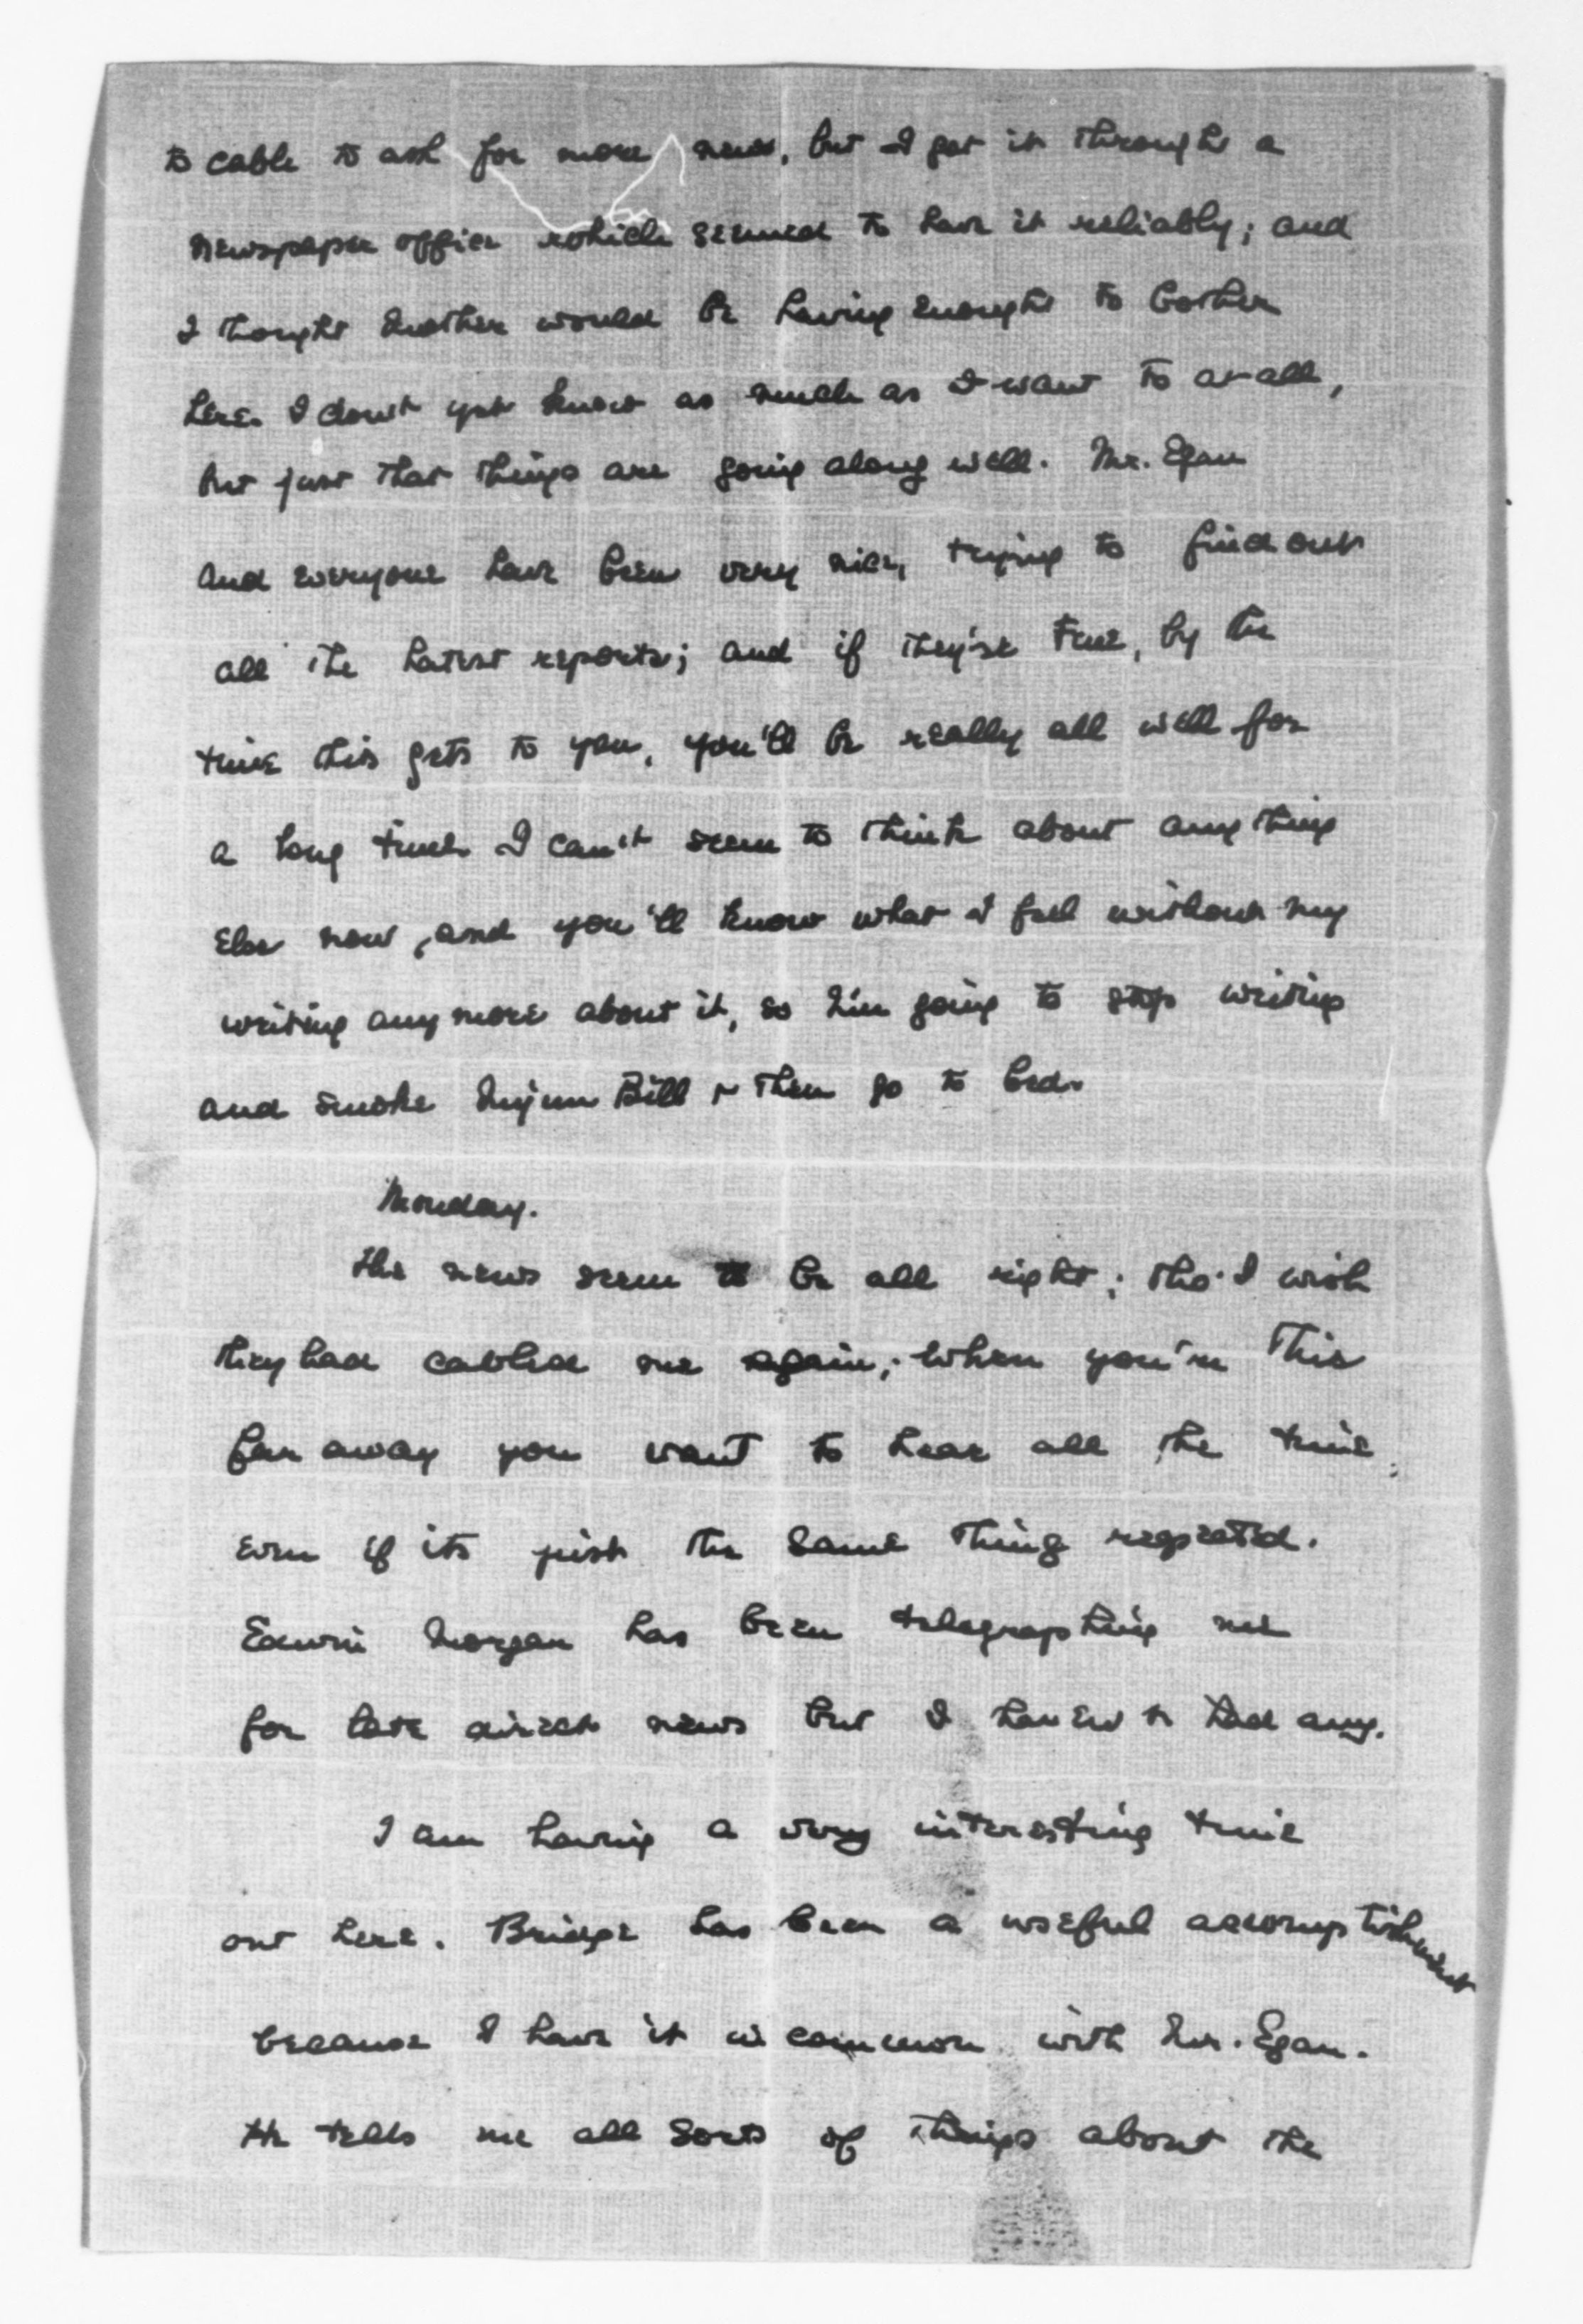 to cable to ask for more news, but I got it through a
newspaper office which seemed to have it reliably; and
I thought Mother would be having enough to bother
here. I don't yet know as much as I want to at all,
but just that things are going along well. Mr. Egan
and everyone have been very nice, trying to find out
all the latest reports; and if they're true, by the
time this gets to you, you'll be really all well for
a long time. I can't seem to think about anything
else now, and you'll know what I feel without my
writing any more about it, so I'm going to stop writing
and smoke Injun Bill & then go to bed.
Monday.
The news seem to be all right; tho' I wish
they had cabled me again; when you're this
far away you want to hear all the time,
even if its just the same thing repeated.
Edwin Morgan has been telegraphing me
for late direct news but I haven't had any.
I am having a very interesting time
out here. Bridge has been a useful accomplishment
because I have it in common with Mr. Egan.
He tells me all sorts of things about the